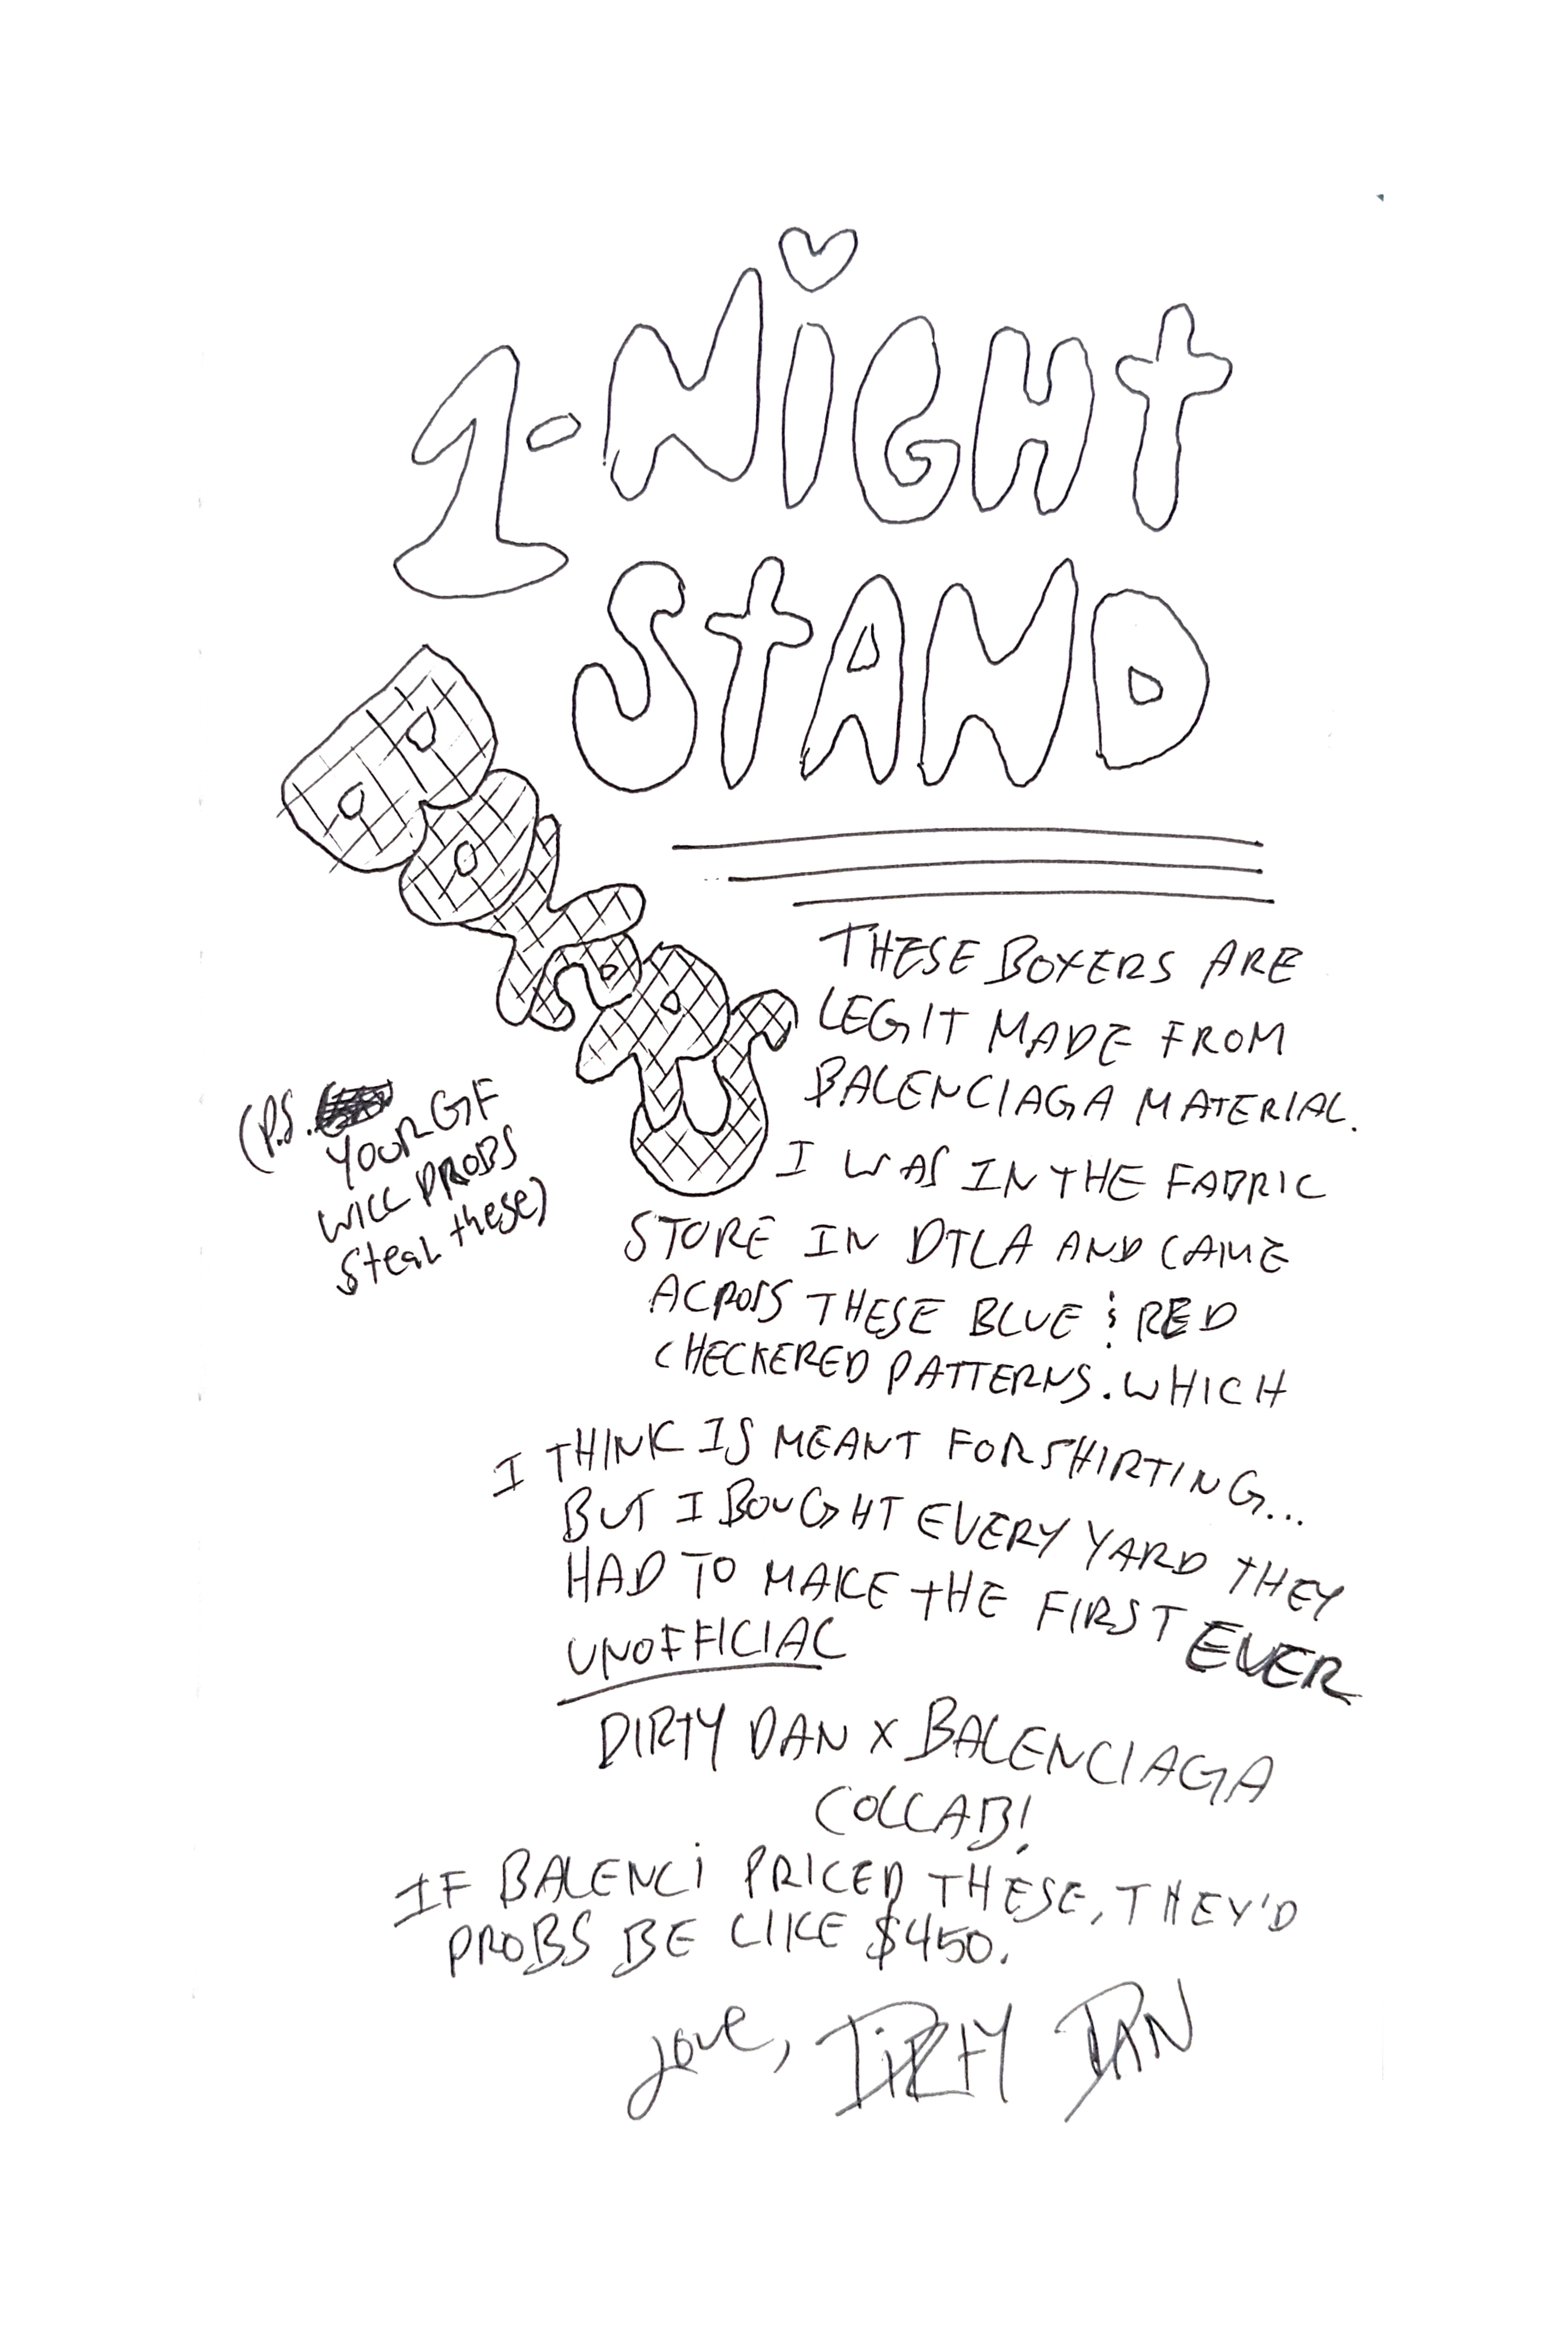 1-NiGHt
StAND
BOXeRS
THESE BOXERS ARE
LEGIT MADE FROM
BALENCIAGA MATERIAL.
I WAS IN THE FABRIC
STORE IN DTLA AND CAME
ACROSS THESE BLUE & RED
CHECKERED PATTERNS. WHICH
I THINK IS MEANT FOR SHIRTING...
BUT I BOUGHT EVERY YARD THEY
HAD TO MAKE THE FIRST EVER
UNOFFICIAL
DIRTY DAN X BALENCIAGA
COLLAB!
IF BALENCi PRICED THESE, THEY'D
PROBS BE LIKE $450.
love, DiRtY DAN
(P.S.
YOUR GF
WILL PROBS
steal these)